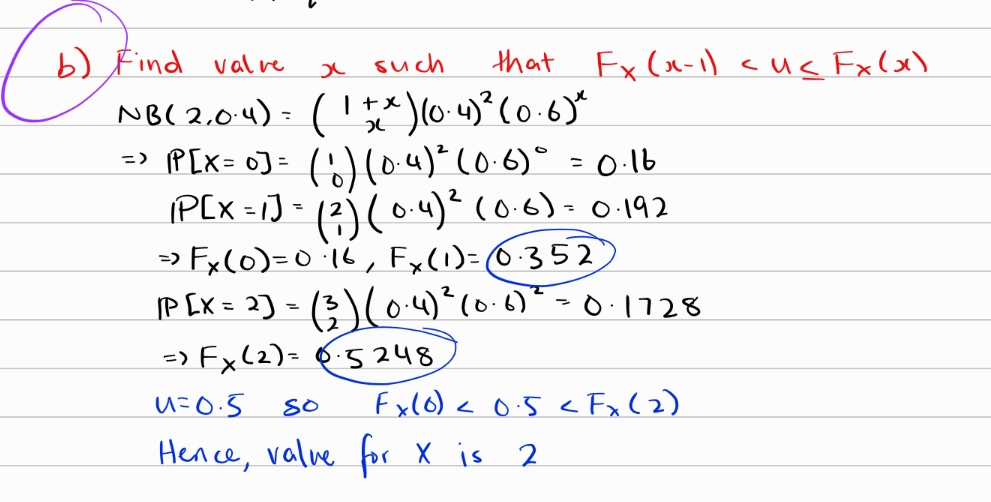 b) Find value x such that F_X(x-1) < u ≤ F_X(x)
NB(2,0.4) = (1+x x)(0.4)²(0.6)ˣ
=> P[X=0] = (1 0)(0.4)²(0.6)⁰ = 0.16
P[X=1] = (2 1)(0.4)²(0.6) = 0.192
=> F_X(0)=0.16, F_X(1)= 0.352
P[X=2] = (3 2)(0.4)²(0.6)² = 0.1728
=> F_X(2)= 0.5248
u=0.5 so F_X(0) < 0.5 < F_X(2)
Hence, value for X is 2